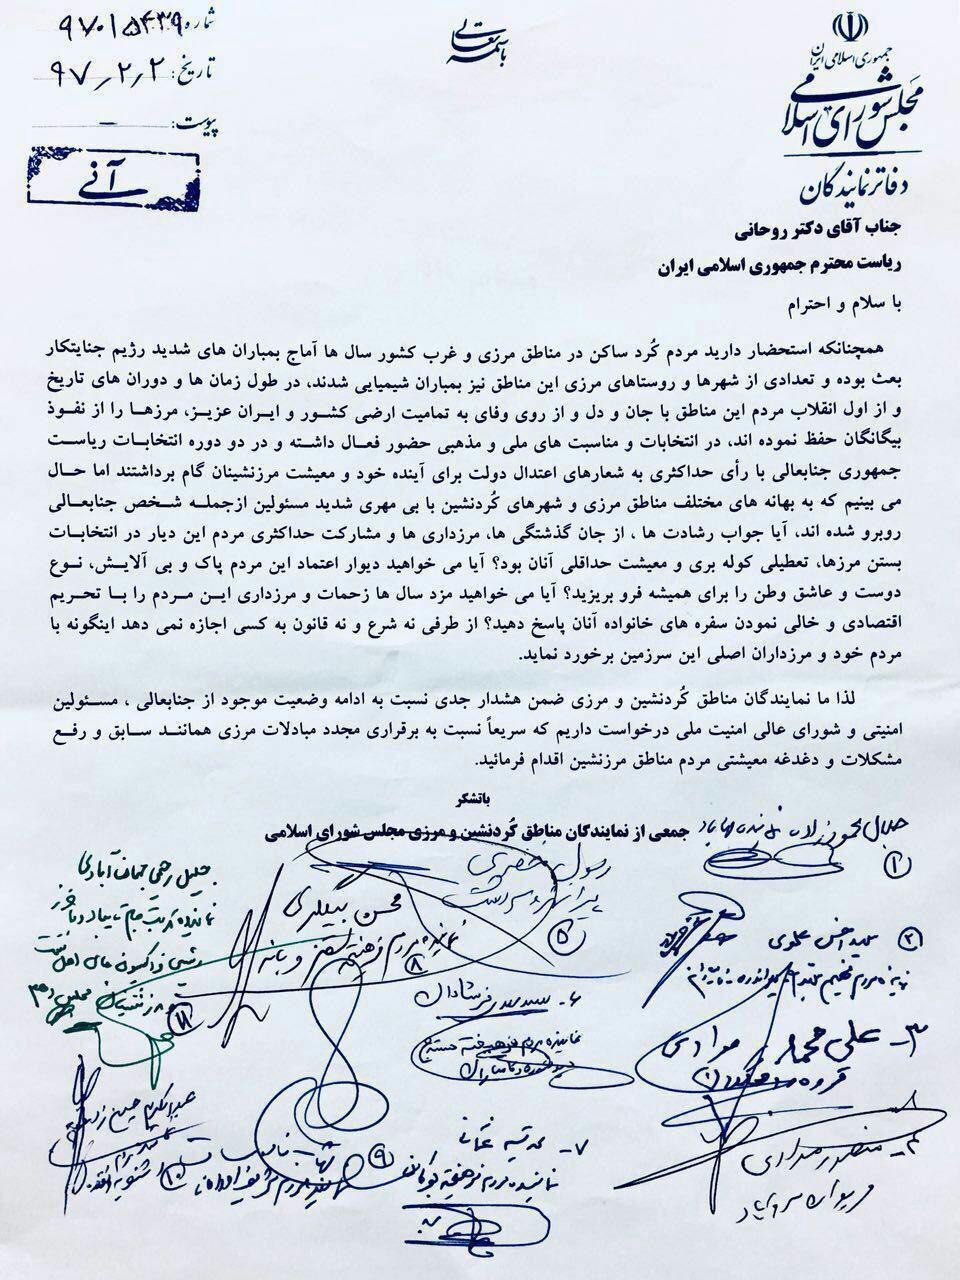 باسمه تعالی
جمهوری اسلامی ایران
مجلس شورای اسلامی
دفاتر نمایندگان
شماره: ۹۷۰۱۵۴۳۹
تاریخ: ۹۷/۲/۲
پیوست: –
آنی
جناب آقای دکتر روحانی
ریاست محترم جمهوری اسلامی ایران
با سلام و احترام
همچنانکه استحضار دارید مردم کُرد ساکن در مناطق مرزی و غرب کشور سال ها آماج بمباران های شدید رژیم جنایتکار
بعث بوده و تعدادی از شهرها و روستاهای مرزی این مناطق نیز بمباران شیمیایی شدند، در طول زمان ها و دوران های تاریخ
و از اول انقلاب مردم این مناطق با جان و دل و از روی وفای به تمامیت ارضی کشور و ایران عزیز، مرزها را از نفوذ
بیگانگان حفظ نموده اند، در انتخابات و مناسبت های ملی و مذهبی حضور فعال داشته و در دو دوره انتخابات ریاست
جمهوری جنابعالی با رأی حداکثری به شعارهای اعتدال دولت برای آینده خود و معیشت مرزنشینان گام برداشتند اما حال
می بینیم که به بهانه های مختلف مناطق مرزی و شهرهای کُردنشین با بی مهری شدید مسئولین ازجمله شخص جنابعالی
روبرو شده اند، آیا جواب رشادت ها ، از جان گذشتگی ها، مرزداری ها و مشارکت حداکثری مردم این دیار در انتخابات
بستن مرزها، تعطیلی کوله بری و معیشت حداقلی آنان بود؟ آیا می خواهید دیوار اعتماد این مردم پاک و بی آلایش، نوع
دوست و عاشق وطن را برای همیشه فرو بریزید؟ آیا می خواهید مزد سال ها زحمات و مرزداری این مردم را با تحریم
اقتصادی و خالی نمودن سفره های خانواده آنان پاسخ دهید؟ از طرفی نه شرع و نه قانون به کسی اجازه نمی دهد اینگونه با
مردم خود و مرزداران اصلی این سرزمین برخورد نماید.
لذا ما نمایندگان مناطق کُردنشین و مرزی ضمن هشدار جدی نسبت به ادامه وضعیت موجود از جنابعالی ، مسئولین
امنیتی و شورای عالی امنیت ملی درخواست داریم که سریعاً نسبت به برقراری مجدد مبادلات مرزی همانند سابق و رفع
مشکلات و دغدغه معیشتی مردم مناطق مرزنشین اقدام فرمائید.
باتشکر
جمعی از نمایندگان مناطق کُردنشین و مرزی مجلس شورای اسلامی
جلال محمودزاده نماینده مهاباد
۱
۲ سید احسن علوی
۳- علی محمد مرادی
قروه
۴- منصور مرادی
مریوان سروآباد
رسول خضری
پیرانشهر و سردشت
۵
۶-
نماینده مردم
۷-
نماینده مردم فرهیخته بوکان
محسن بیگلری
نماینده مردم فرهیخته سقز و بانه
۸
۹
۱۰
جلیل رحیمی جهان آبادی
نماینده تربت جام تایباد و باخرز
۱۱